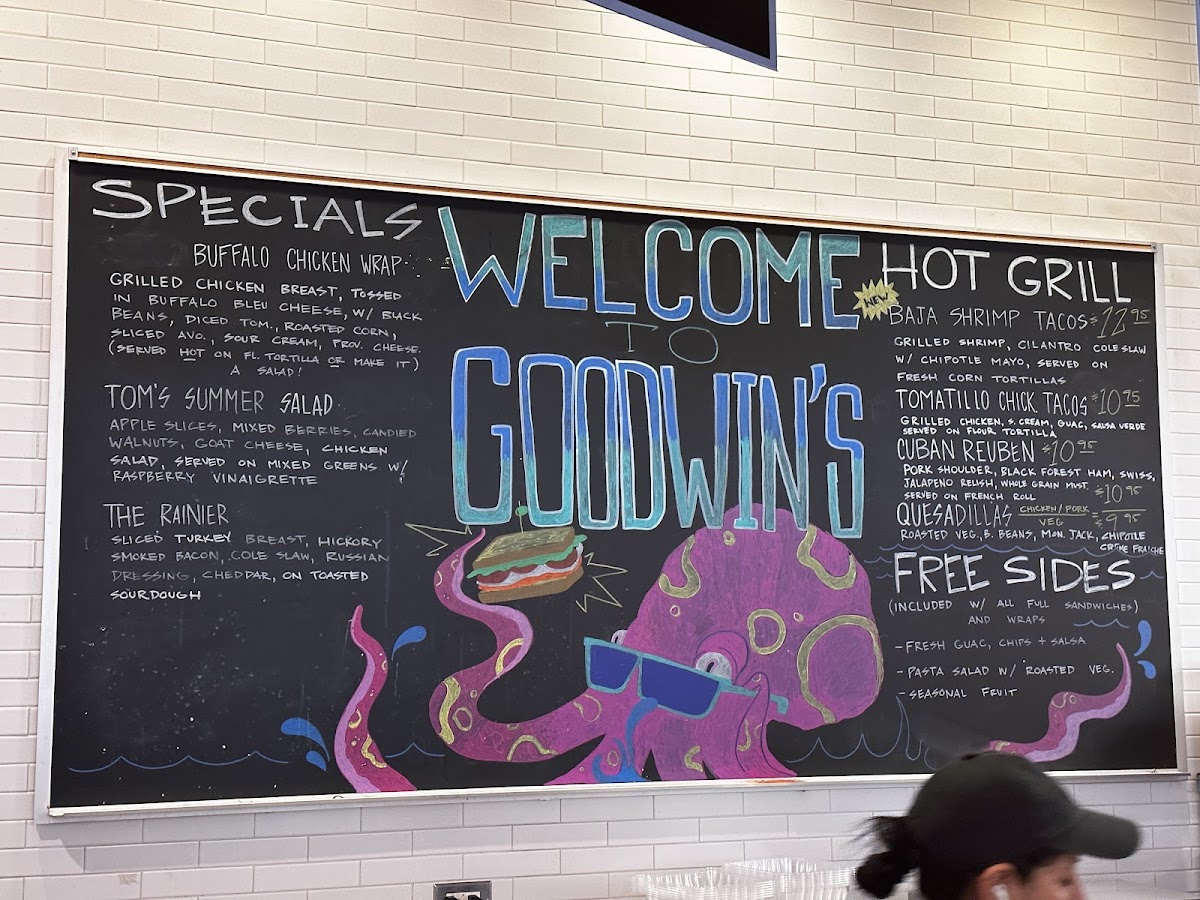 SPECIALS
BUFFALO CHICKEN WRAP
GRILLED CHICKEN BREAST, TOSSED
IN BUFFALO BLEU CHEESE, W/ BLACK
BEANS, DICED TOM., ROASTED CORN,
SLICED AVO., SOUR CREAM, PROV. CHEESE.
(SERVED HOT ON FL. TORTILLA OR MAKE IT)
A SALAD!
TOM'S SUMMER SALAD
APPLE SLICES, MIXED BERRIES, CANDIED
WALNUTS, GOAT CHEESE, CHICKEN
SALAD, SERVED ON MIXED GREENS W/
RASPBERRY VINAIGRETTE
THE RAINIER
SLICED TURKEY BREAST, HICKORY
SMOKED BACON, COLE SLAW, RUSSIAN
DRESSING, CHEDDAR, ON TOASTED
SOURDOUGH
WELCOME
TO
GOODWIN'S
HOT GRILL
NEW
BAJA SHRIMP TACOS $12.95
GRILLED SHRIMP, CILANTRO COLESLAW
W/ CHIPOTLE MAYO, SERVED ON
FRESH CORN TORTILLAS
TOMATILLO CHICK TACOS $10.95
GRILLED CHICKEN, S. CREAM, GUAC, SALSA VERDE
SERVED ON FLOUR TORTILLA
CUBAN REUBEN $10.95
PORK SHOULDER, BLACK FOREST HAM, SWISS,
JALAPENO RELISH, WHOLE GRAIN MUST.
SERVED ON FRENCH ROLL
QUESADILLAS CHICKEN/PORK $10.95
VEG $9.95
ROASTED VEG, B. BEANS, MON. JACK, CHIPOTLE
CRÈME FRAICHE
FREE SIDES
(INCLUDED W/ ALL FULL SANDWICHES)
AND WRAPS
- FRESH GUAC, CHIPS + SALSA
- PASTA SALAD W/ ROASTED VEG.
- SEASONAL FRUIT